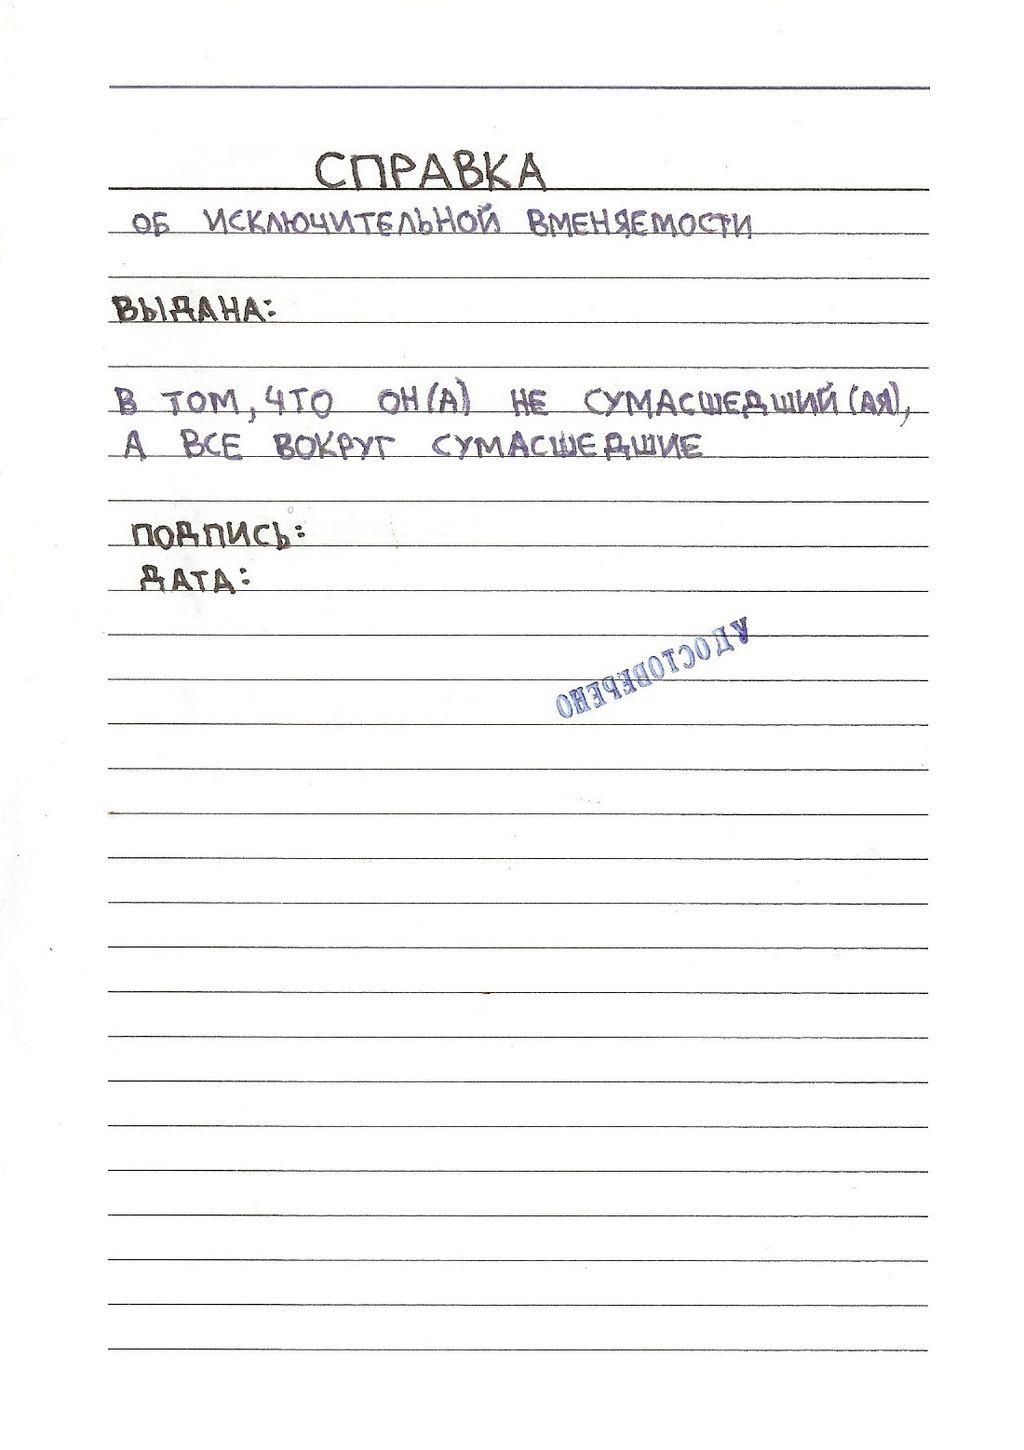 СПРАВКА
ОБ ИСКЛЮЧИТЕЛЬНОЙ ВМЕНЯЕМОСТИ
ВЫДАНА:
В ТОМ, ЧТО ОН(А) НЕ СУМАСШЕДШИЙ(АЯ),
А ВСЕ ВОКРУГ СУМАСШЕДШИЕ
ПОДПИСЬ:
ДАТА:
УДОСТОВЕРЕНО